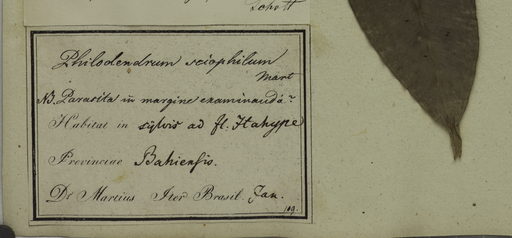 Schott
Philodendrum sciophilum
Mart
NB. Parasita in margine examinanda?
Habitat in sylvis ad fl. Itahype
Provinciae Bahiensis.
Dr Martius Iter Brasil. Jan.